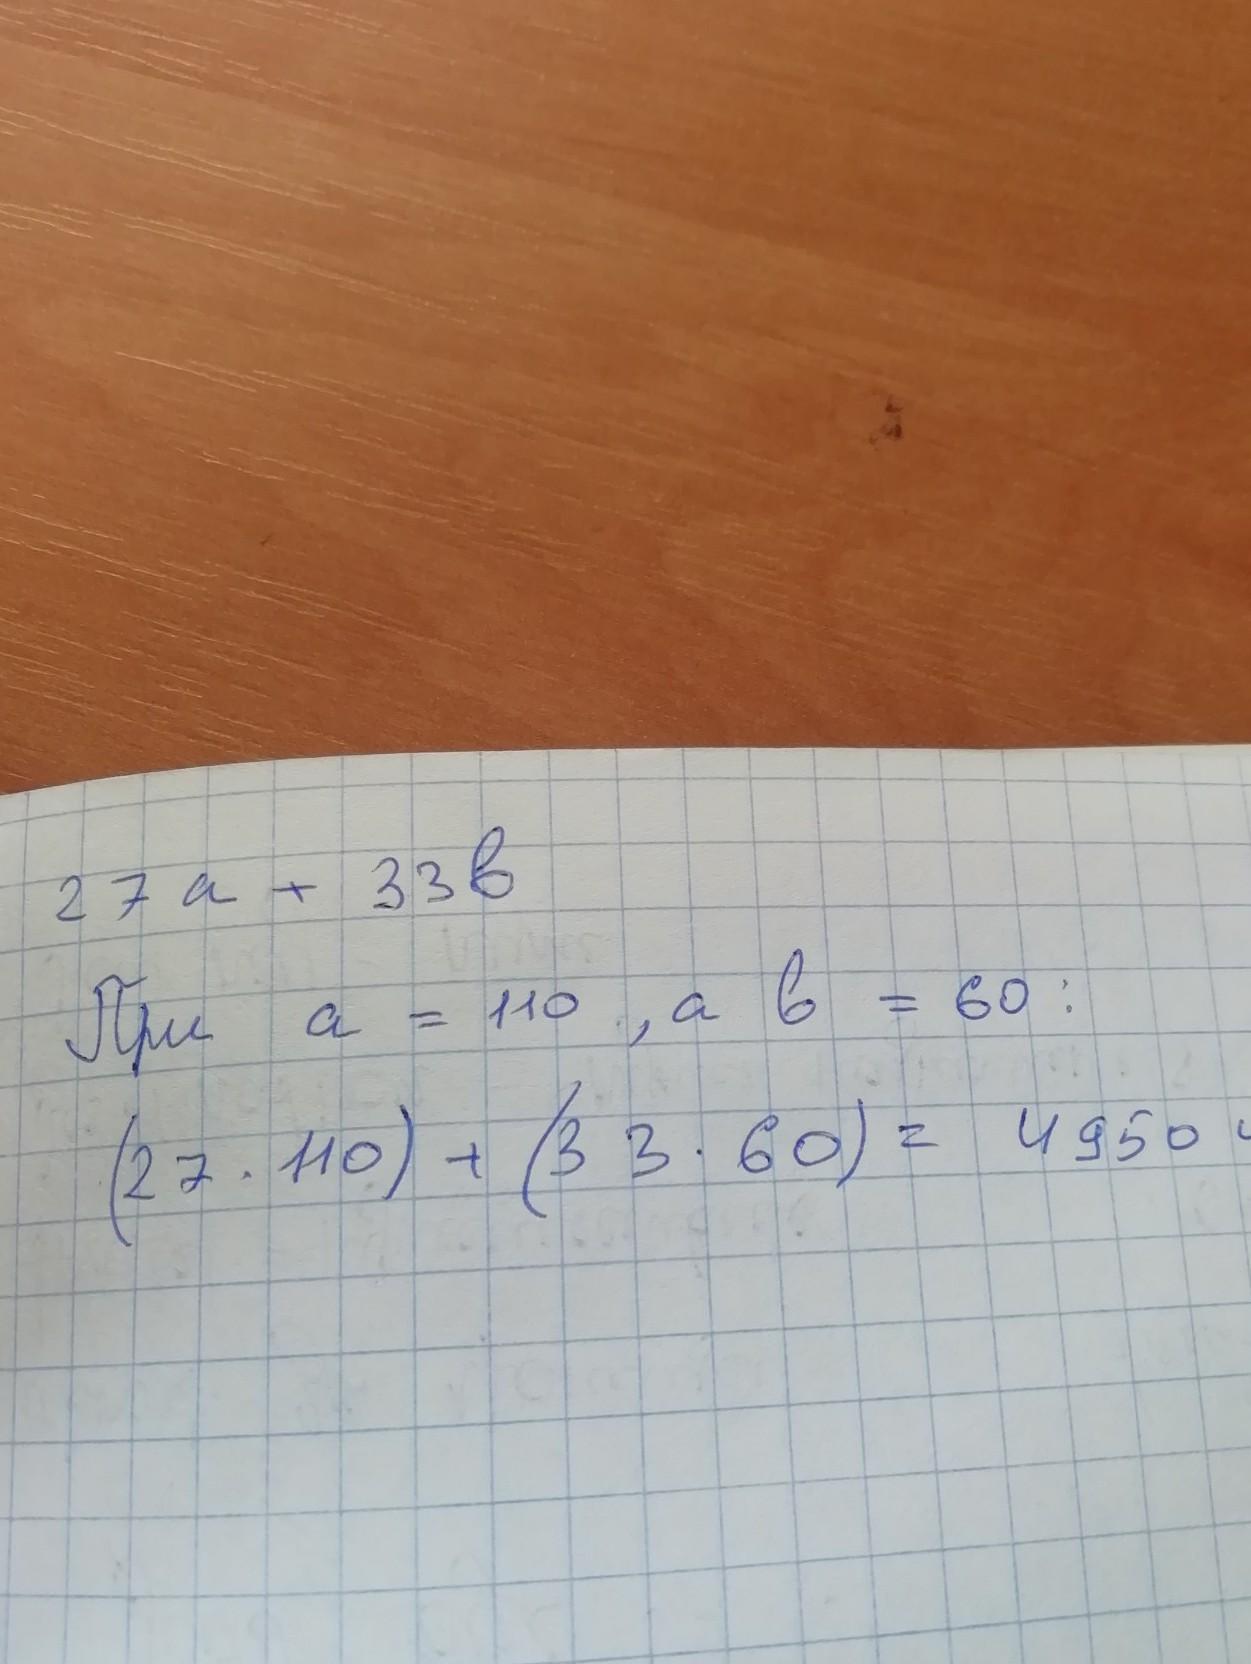 27а + 33в
При а = 110, а в = 60:
(27 · 110) + (33 · 60) = 4950